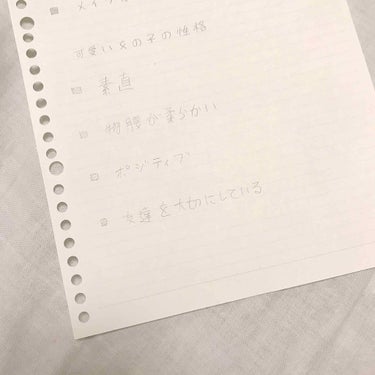 ■ メイク
可愛い女の子の性格
■ 素直
■ 物腰が柔らかい
■ ポジティブ
■ 友達を大切にしている